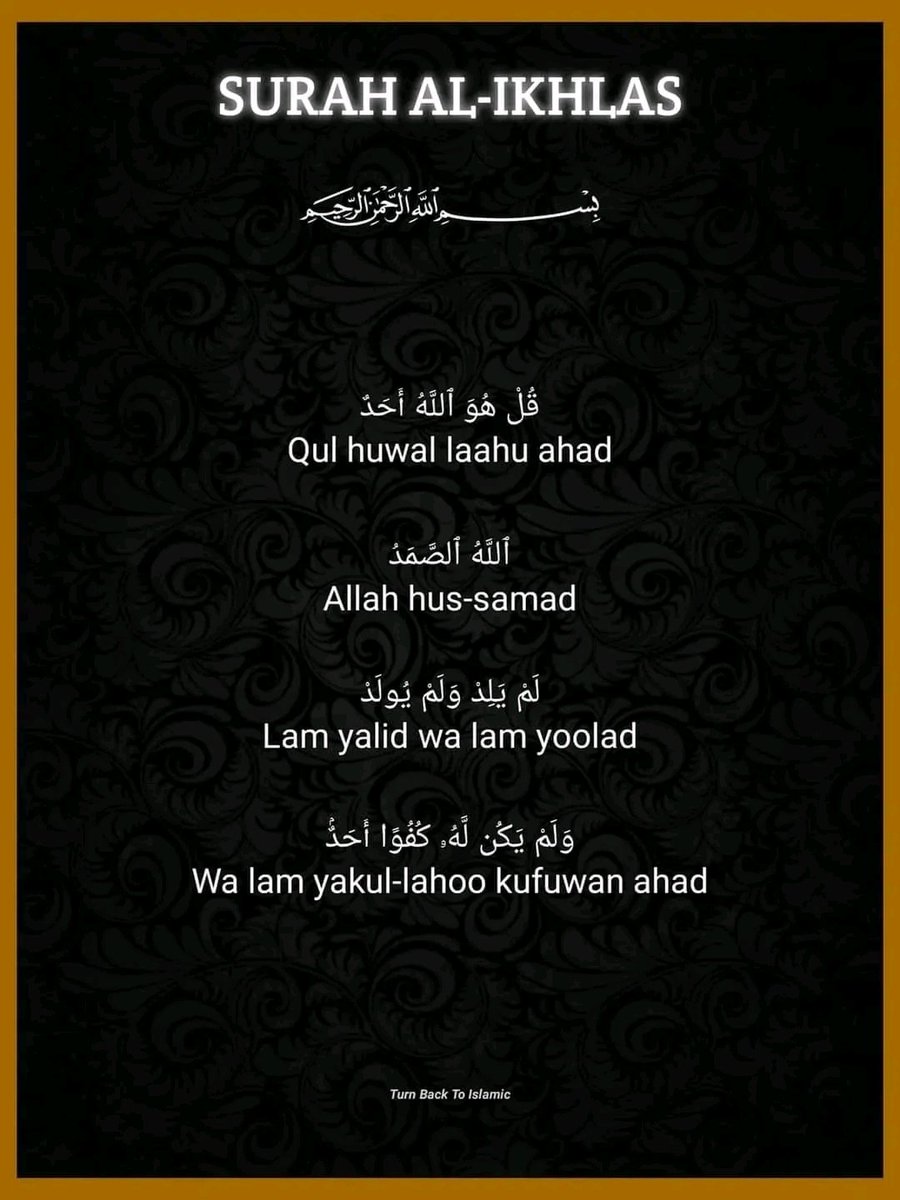 SURAH AL-IKHLAS
بِسْمِ ٱللَّهِ ٱلرَّحْمَٰنِ ٱلرَّحِيمِ
قُلْ هُوَ ٱللَّهُ أَحَدٌ
Qul huwal laahu ahad
ٱللَّهُ ٱلصَّمَدُ
Allah hus-samad
لَمْ يَلِدْ وَلَمْ يُولَدْ
Lam yalid wa lam yoolad
وَلَمْ يَكُن لَّهُۥ كُفُوًا أَحَدٌۢ
Wa lam yakul-lahoo kufuwan ahad
Turn Back To Islamic